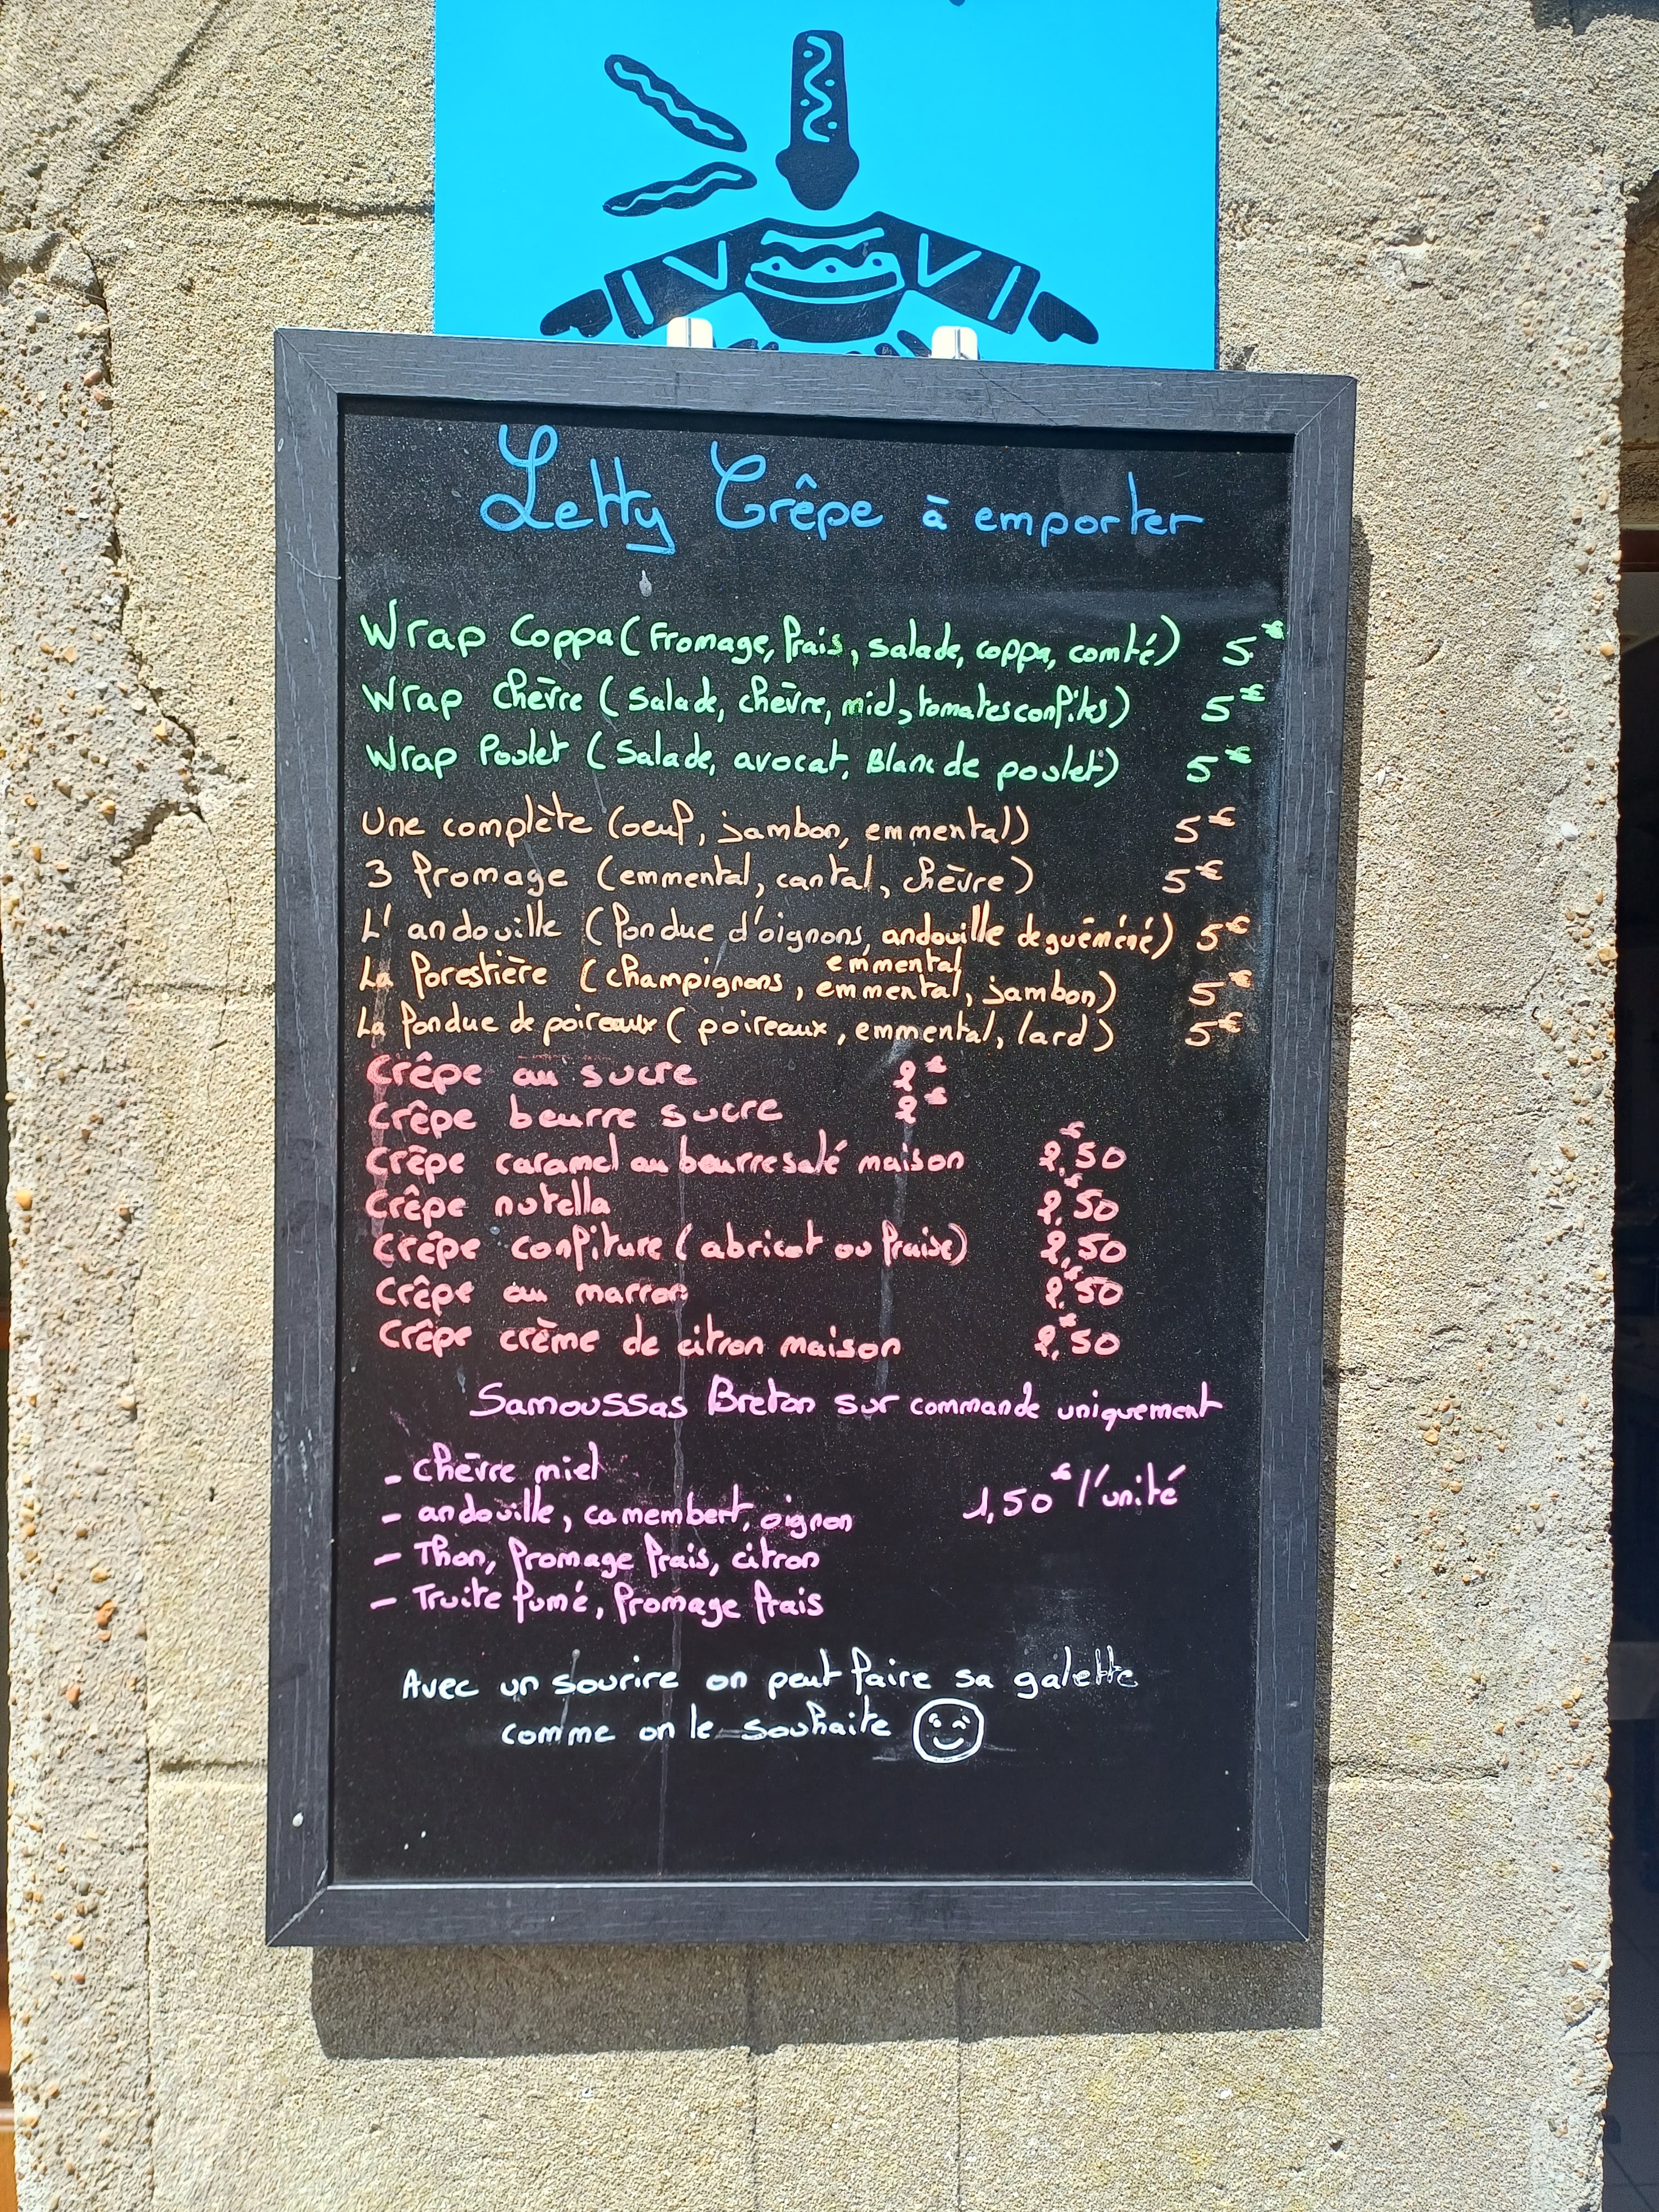 Letty Crêpe à emporter
Wrap Coppa (Fromage, frais, salade, coppa, comté) 5€
Wrap Chèvre (Salade, chèvre, miel, tomates confites) 5€
Wrap Poulet (Salade, avocat, Blanc de poulet) 5€
Une complète (oeuf, jambon, emmental) 5€
3 fromage (emmental, cantal, chèvre) 5€
L'andouille (fondue d'oignons, andouille de guémené) 5€
emmental
La forestière (champignons, emmental, jambon) 5€
La fondue de poireaux (poireaux, emmental, lard) 5€
Crêpe au sucre 2€
Crêpe beurre sucre 2€
Crêpe caramel au beurre salé maison 2,€50
Crêpe nutella 2,€50
Crêpe confiture (abricot ou fraise) 2,50
Crêpe au marron 2,€50
Crêpe crème de citron maison 2,€50
Samoussas Breton sur commande uniquement
- chèvre miel
- andouille, camembert, oignon 1,50€ l'unité
- Thon, fromage frais, citron
- Truite fumé, fromage frais
Avec un sourire on peut faire sa galette
comme on le souhaite